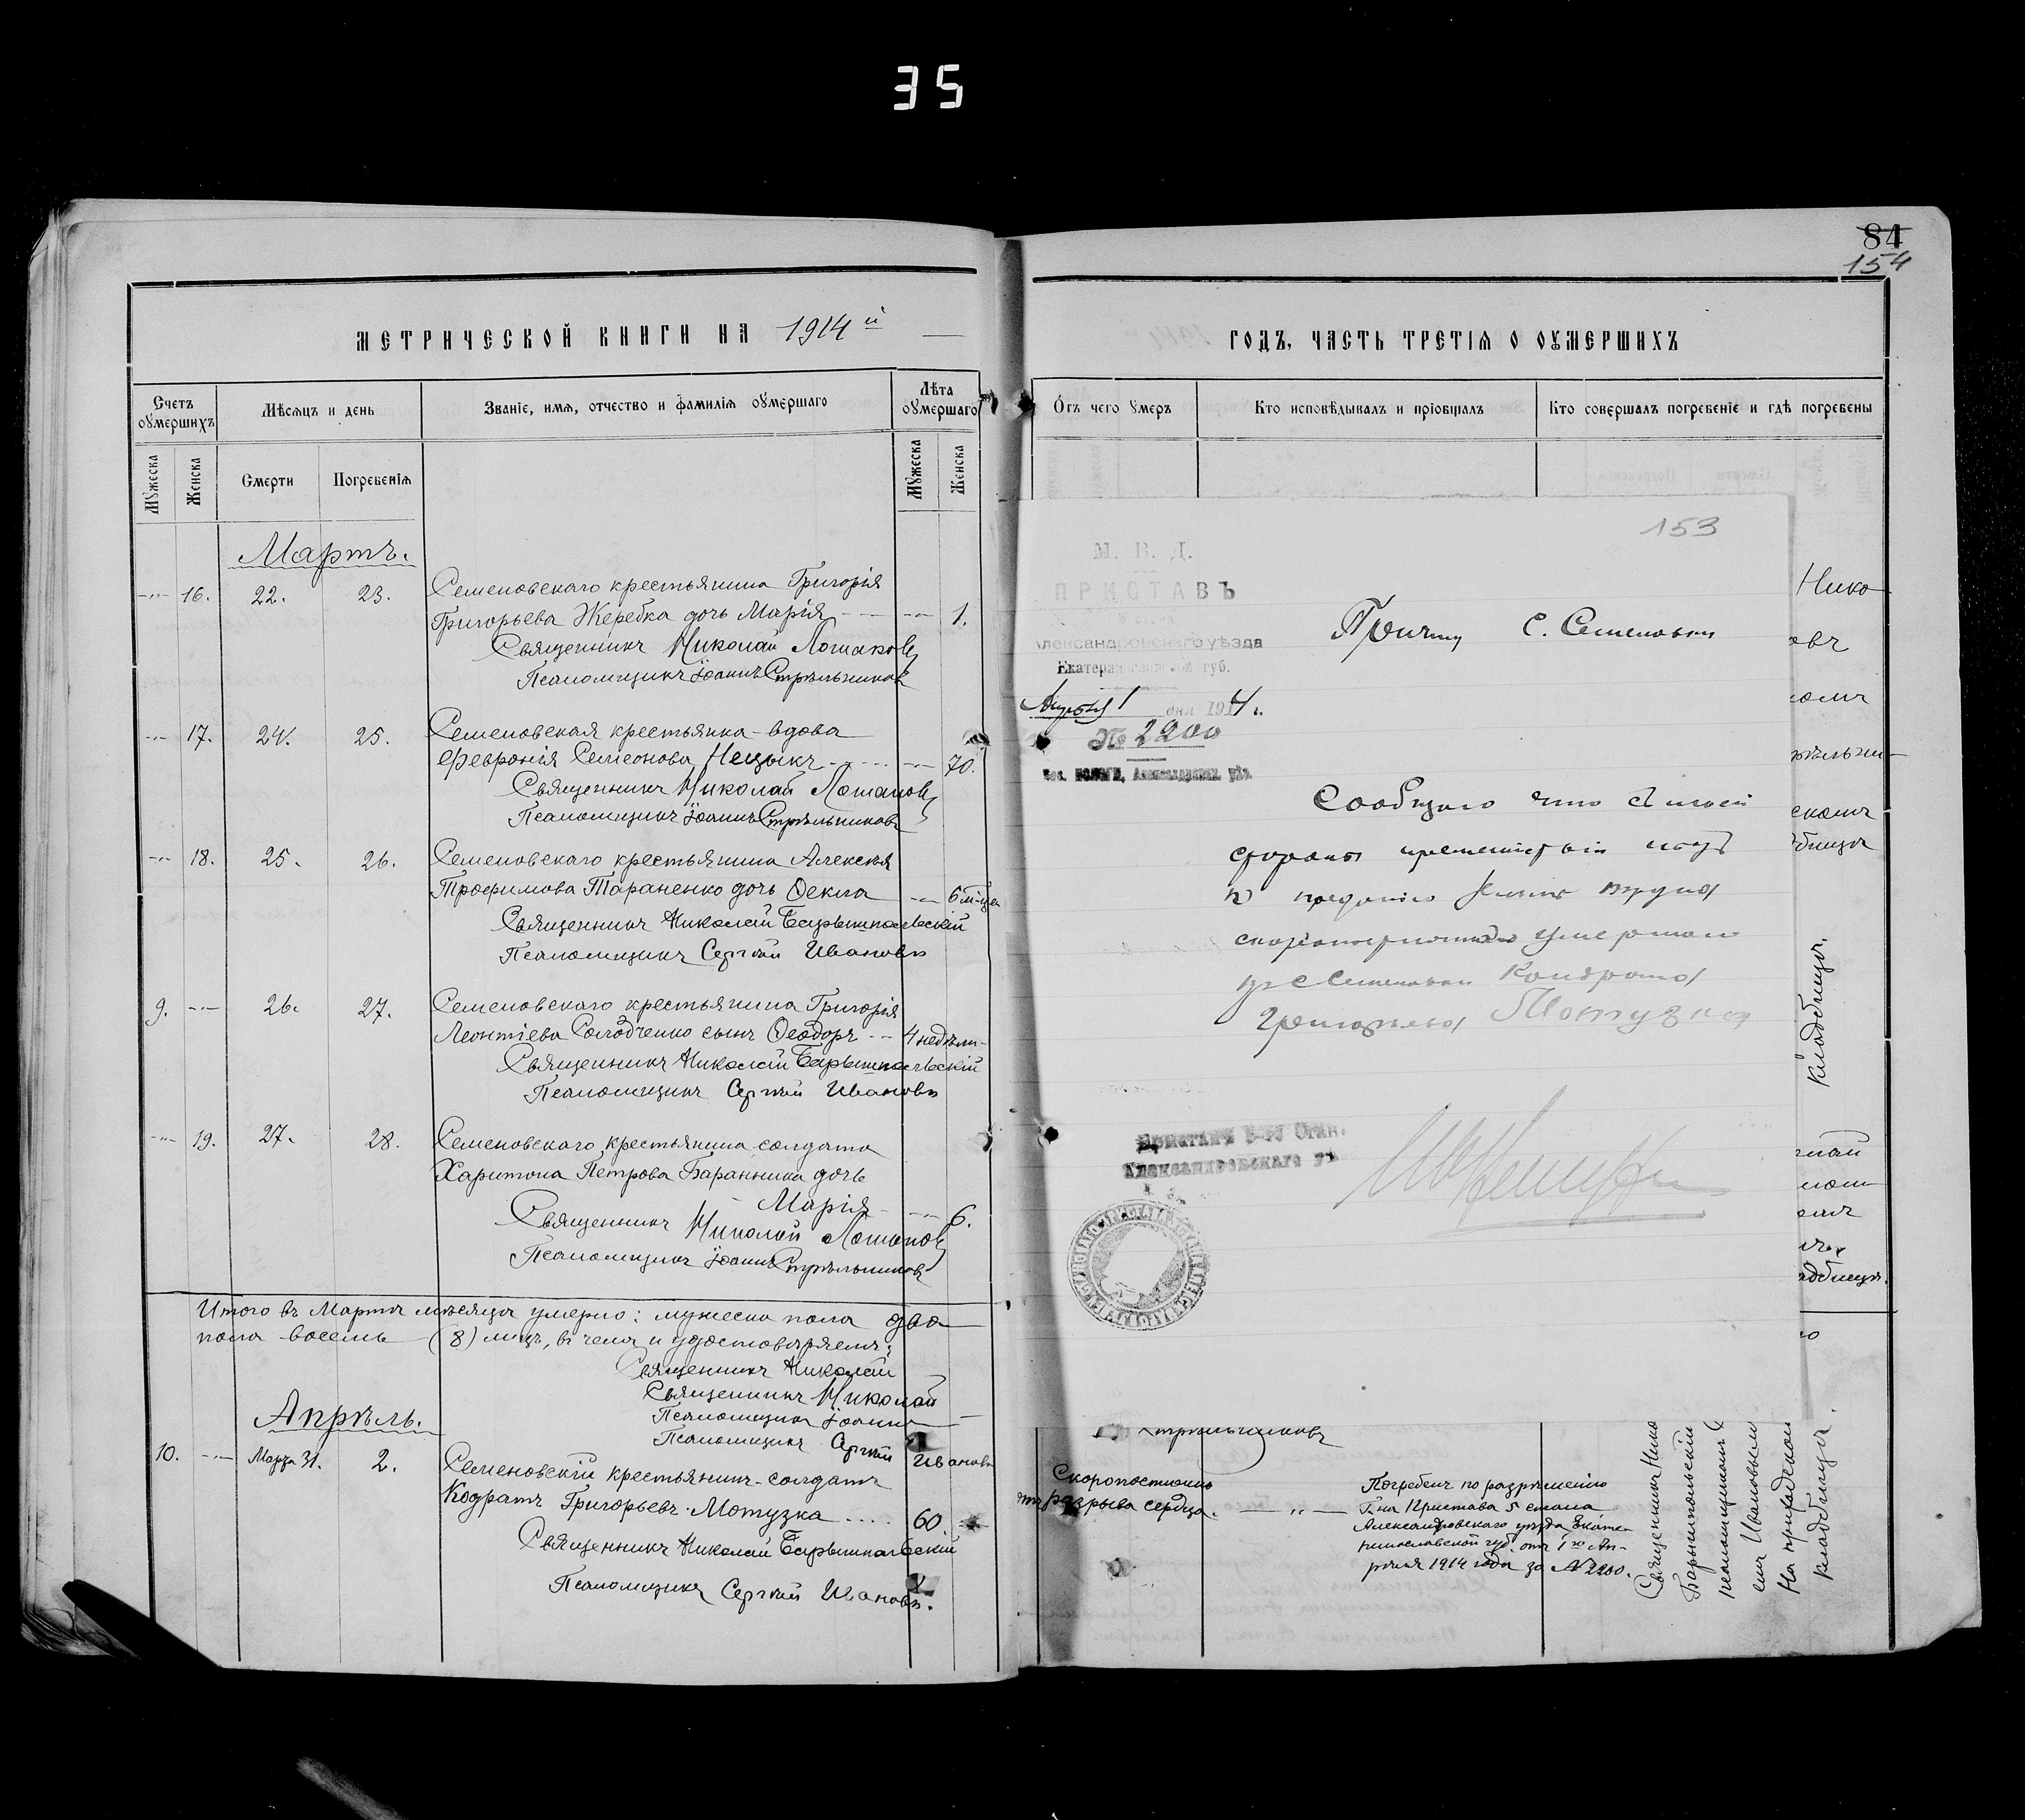 35
84
154
МЕТРИЧЕСКОЙ КНИГИ НА 1914 й
Счетъ оумершихъ
Мѣсяцъ и день
Званіе, имя, отчество и фамилія оумершаго
Лѣта оумершаго
Мужеска
Женска
Смерти
Погребенія
Мужеска
Женска
Мартъ.
16. 22. 23. Семеновскаго крестьянина Григорія
Григорьева Жеребка дочь Марія 1.
Священникъ Николай Лошаковъ
Псаломщикъ Іоаннъ Стрѣльниковъ
17. 24. 25. Семеновская крестьянка-вдова
Февронія Семеонова 70.
Священникъ Николай Лошаковъ
Псаломщикъ Іоаннъ Стрѣльниковъ
18. 25. 26. Семеновскаго крестьянина Алексѣя
Трофимова Тараненко дочь Ѳекла
Священникъ Николай Барышпольскій
Псаломщикъ Сергѣй Ивановъ
9. 26. 27. Семеновскаго крестьянина Григорія
Леонтіева Солодченко сынъ Ѳеодоръ 4 недѣли
Священникъ Николай Барышпольскій
Псаломщикъ Сергѣй Ивановъ
19. 27. 28. Семеновскаго крестьянина-солдата
Харитона Петрова Баранника дочь
Марія 6.
Священникъ Николай Лошаковъ
Псаломщикъ Іоаннъ Стрѣльниковъ
Итого въ Мартѣ мѣсяцѣ умерло: мужеска пола два
пола восемь (8) лицъ, въ чемъ и удостовѣряемъ:
Священникъ Николай
Священникъ Николай
Псаломщикъ Іоаннъ
Псаломщикъ Сергѣй Ивановъ
Апрѣль.
10. Марта 31. 2. Семеновскій крестьянинъ-солдатъ
Кодратъ Григорьевъ Мотузка 60
Священникъ Николай Барышпольскій
Псаломщикъ Сергѣй Ивановъ.
ГОДЪ, ЧАСТЬ ТРЕТІЯ О ОУМЕРШИХЪ
Отъ чего умеръ
Кто исповѣдывалъ и пріобщалъ
Кто совершалъ погребеніе и гдѣ погребены
153
М. В. Д.
ПРИСТАВЪ
Александровскаго уѣзда
Екатеринославской губ.
Апрѣля 1 дня 1914 г.
№ 2200
Причту с. Семеновки
Сообщаю что съ моей
стороны препятствій нѣтъ
къ преданію землѣ трупа
скоропостижно умершаго
с Семеновки Кондрата
Григорьева Мотузка
Приставъ 5-го Стан.
Александровскаго уѣ
Нико
овъ
омъ
скомъ
бищѣ
кладбищѣ.
Стрѣльниковъ
Скоропостижно
отъ разрыва сердца.
Погребенъ по разрѣшенію
Г-на Пристава 5 стана
Александровскаго уѣзда Екате-
ринославской губ. отъ 1го Ап-
рѣля 1914 года за № 2200.
Священникъ Нико
Барышпольскій
псаломщикомъ С
емъ Ивановымъ
На приходскомъ
кладбищѣ.